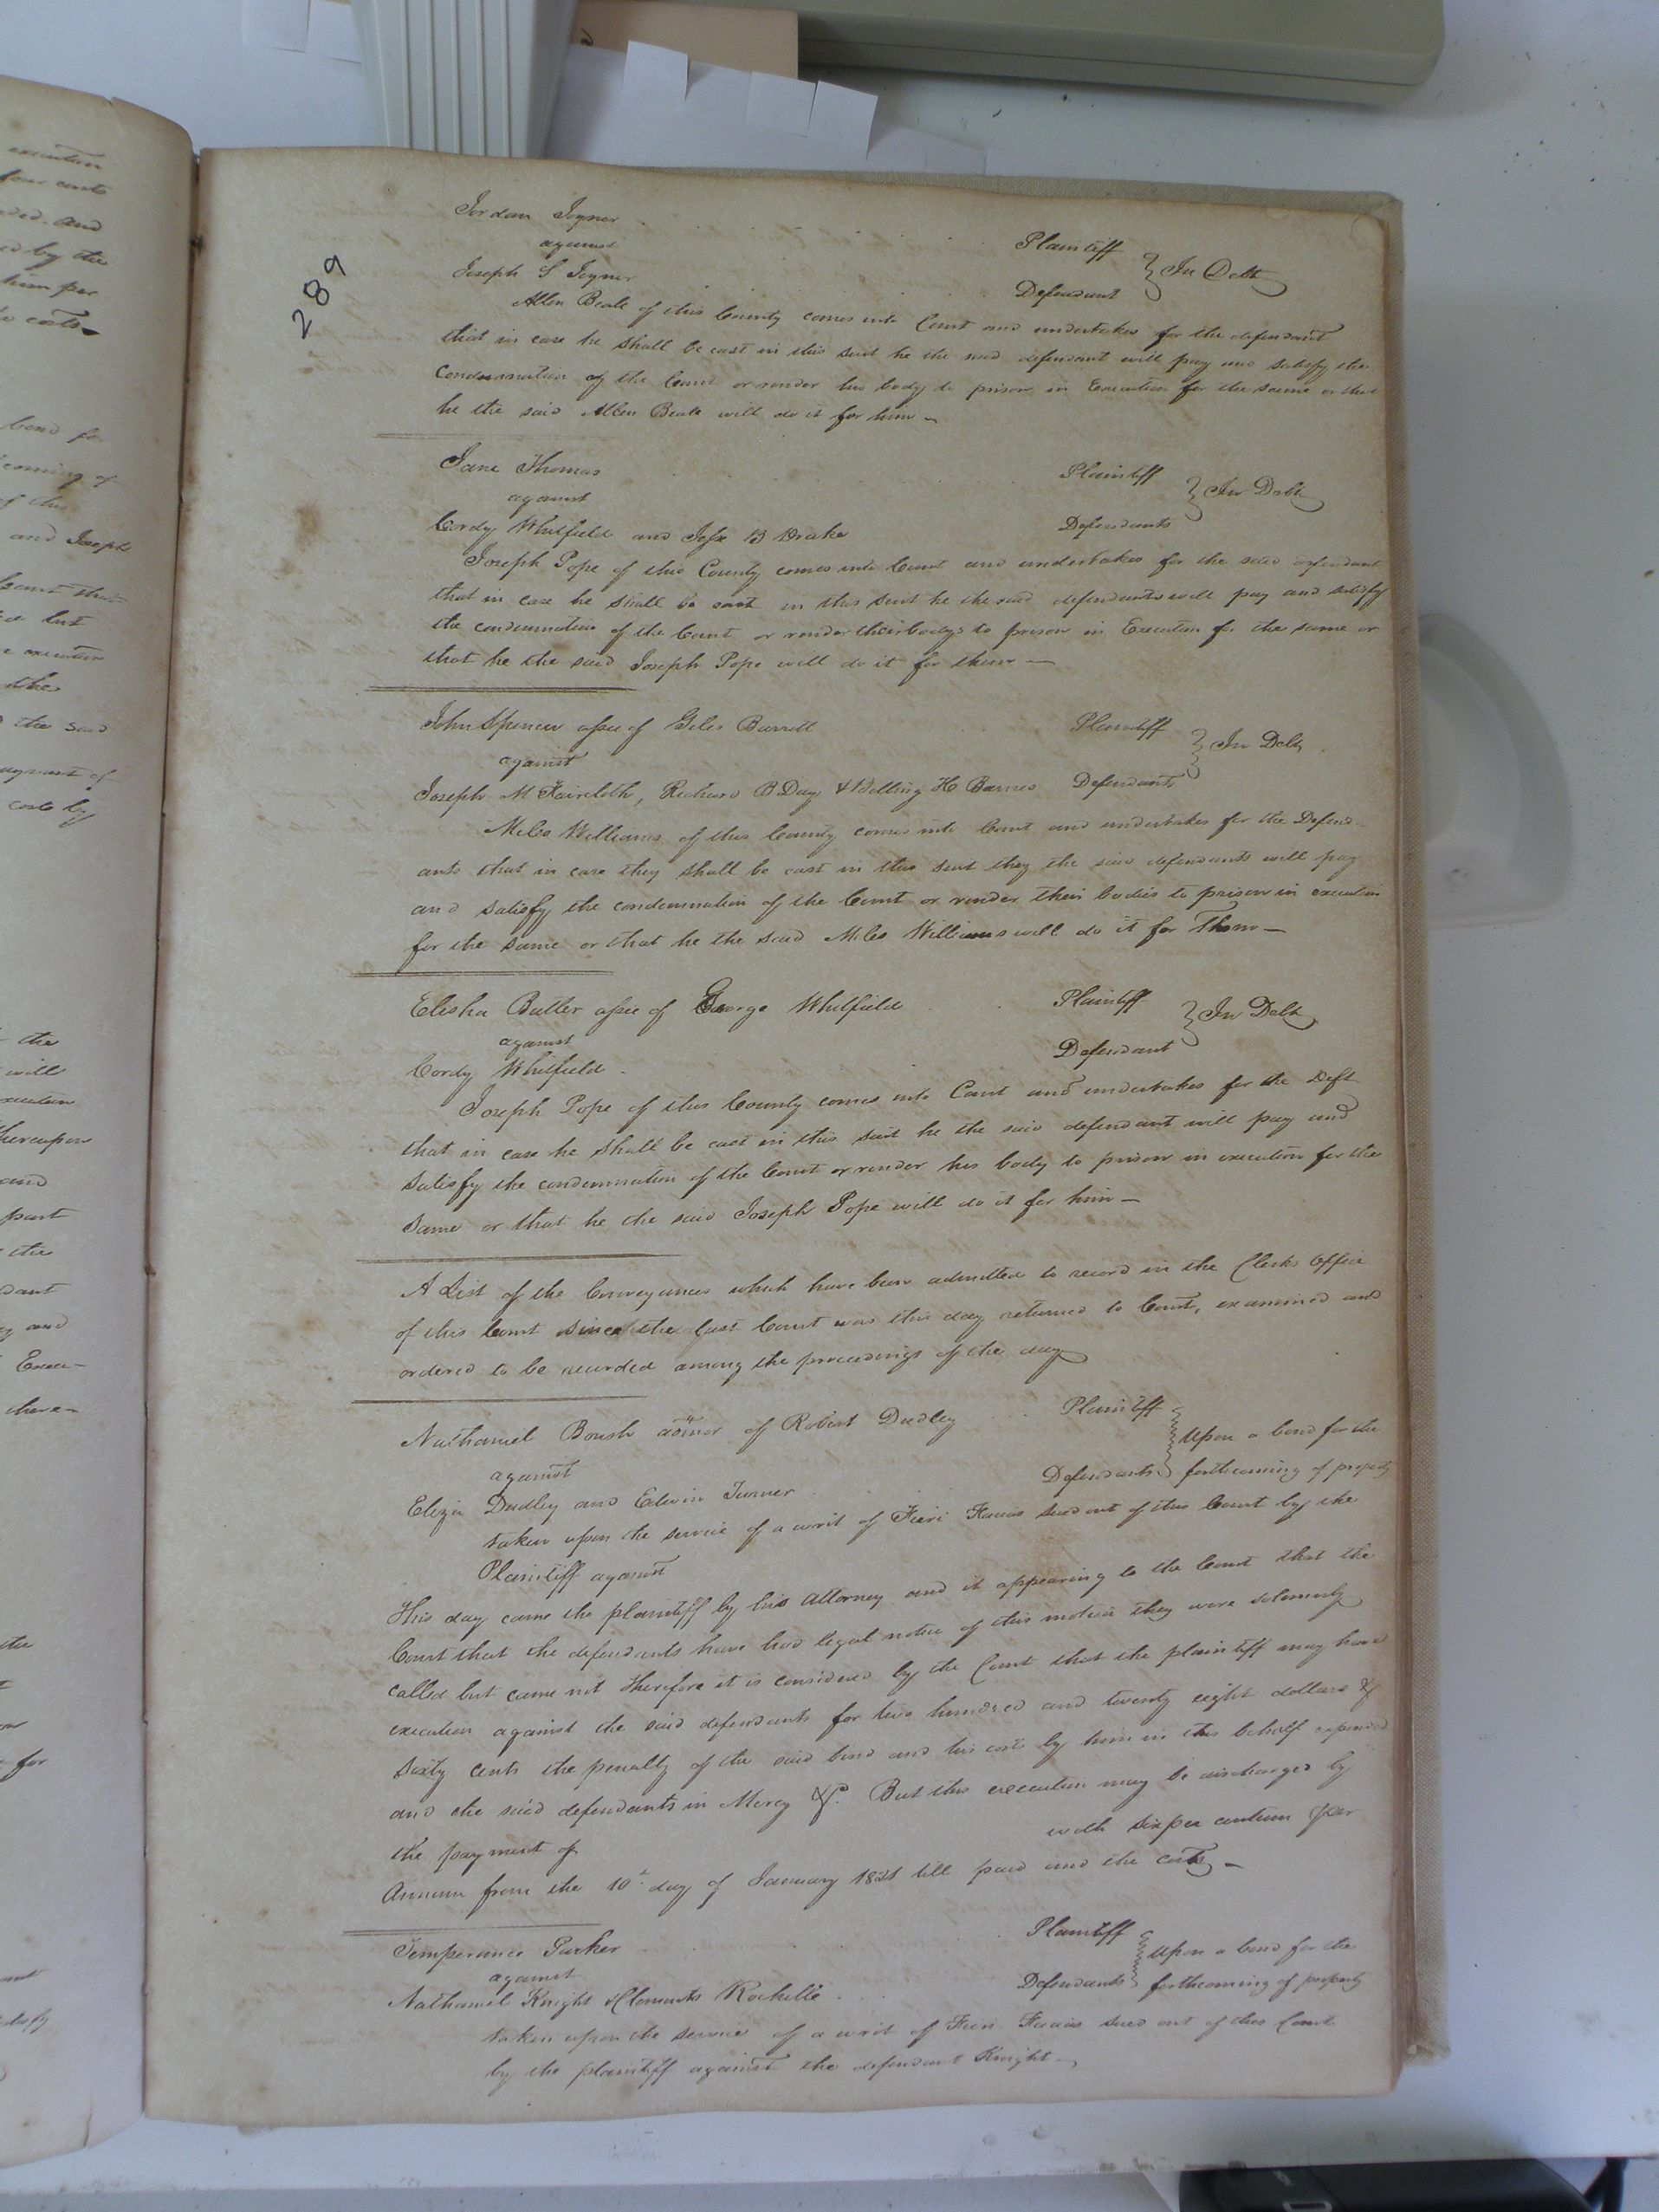 289
Jordan Joyner Plaintiff
against } In Debt
Joseph S Joyner Defendant
Allen Beale of this County comes into Court and undertakes for the defendant
that in case he shall be cast in this suit he the said defendant will pay and satisfy the
Condemnation of the Court or render his body to prison in Execution for the same or that
he the said Allen Beale will do it for him —
Jane Thomas Plaintiff
against } In Debt
Cordy Whitfield and Jesse B Drake Defendants
Joseph Pope of this County comes into Court and undertakes for the said defendant
that in case he shall be cast in this suit he the said defendants will pay and satisfy
the condemnation of the Court or render their bodys to prison in Execution for the same or
that he the said Joseph Pope will do it for them —
John Spencer assee of Giles Barrett Plaintiff
against } In Debt
Joseph M Faircloth, Richard B Day & Bolling H Barnes Defendants
Miles Williams of this County comes into Court and undertakes for the Defend-
ants that in case they shall be cast in this suit they the said defendants will pay
and satisfy the condemnation of the Court or render their bodies to prison in execution
for the same or that he the said Miles Williams will do it for Them —
Elisha Butler assee of George Whitfield Plaintiff
against } In Debt
Cordy Whitfield Defendant
Joseph Pope of this County comes into Court and undertakes for the Deft
that in case he shall be cast in this suit he the said defendant will pay and
satisfy the condemnation of the Court or render his body to prison in execution for the
same or that he the said Joseph Pope will do it for him —
A List of the Conveyances which have been admitted to record in the Clerks Office
of this Court since the last Court was this day returned to Court, examined and
ordered to be recorded among the proceedings of the day
Nathaniel Boush admor of Robert Dudley Plaintiff
against } Upon a bond for the
Eliza Dudley and Edwin Turner Defendants forthcoming of property
taken upon the service of a writ of Fieri Facias sued out of this Court by the
Plaintiff against
This day came the plaintiff by his Attorney and it appearing to the Court that the
Court that the defendants have had legal notice of this motion they were solemnly
called but came not Therefore it is considered by the Court that the plaintiff may have
execution against the said defendants for two hundred and twenty eight dollars &
sixty cents the penalty of the said bond and his costs by him in this behalf expended
and the said defendants in Mercy &c. But this execution may be discharged by
the payment of with six per centum per
Annum from the 10th day of January 1821 till paid and the costs —
Temperance Parker Plaintiff
against } Upon a bond for the
Nathaniel Knight & Clements Rochelle Defendants forthcoming of property
taken upon the service of a writ of Fieri Facias sued out of this Court
by the plaintiff against the defendant Knight —